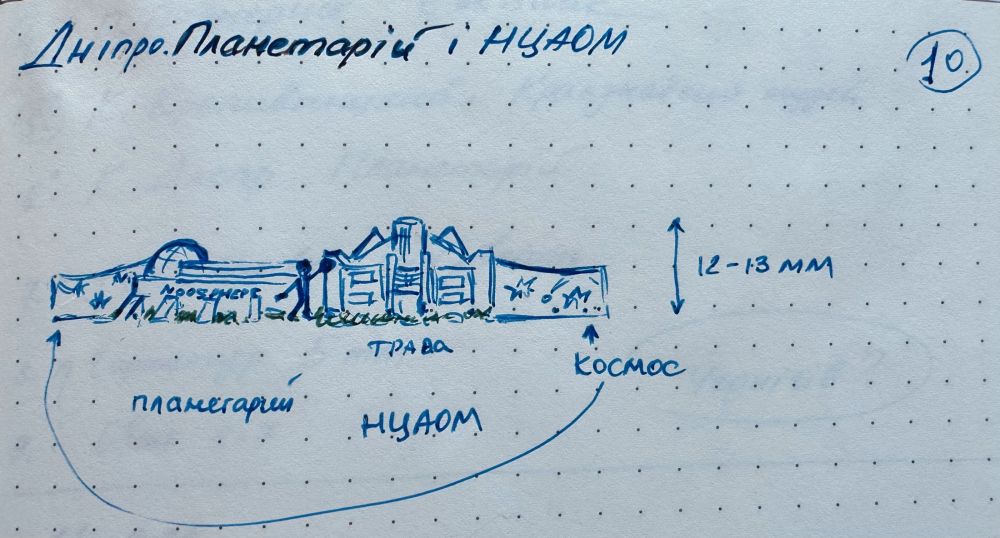 Дніпро. Планетарій і НЦАОМ
10.
12-13 мм
NOOSPHERE
ТРАВА
КОСМОС
планетарий
НЦАОМ